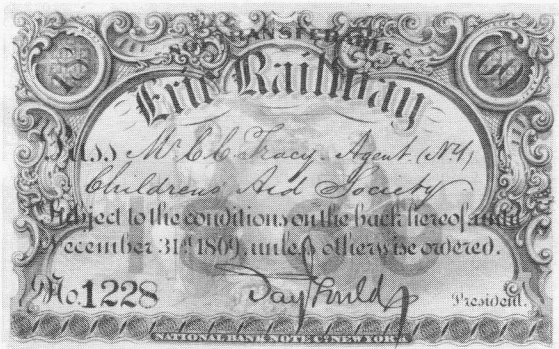 18
69
NOT TRANSFERABLE
Erie Railway
Pass Mr C C Tracy. Agent (NY)
Childrens Aid Society
Subject to the conditions on the back hereof, until
December 31st 1869, unless otherwise ordered.
No. 1228 Jay Gould President.
NATIONAL BANK NOTE CO. NEW YORK